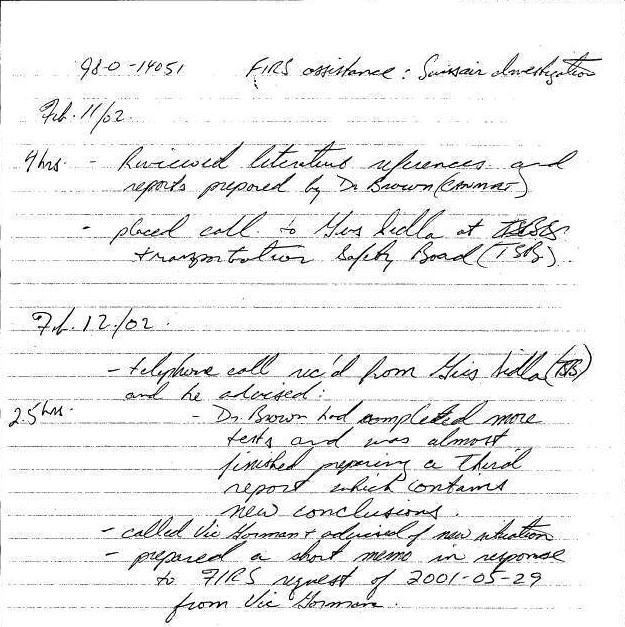 98-0-14051 FIRS assistance: Swissair Investigation
Feb. 11/02.
4hrs. - Reviewed literature references and
reports prepared by Dr Brown (CANMET)
- placed call to Gus Sidla at
Transportation Safety Board (TSB).
Feb. 12/02.
- telephone call rec'd from Gus Sidla (TSB)
and he advised:
2.5hrs. - Dr. Brown had completed more
tests and was almost
finished preparing a third
report which contains
new conclusions.
- called Vic Gorman + advised of new situation
- prepared a short memo in response
to FIRS request of 2001-05-29
from Vic Gorman.